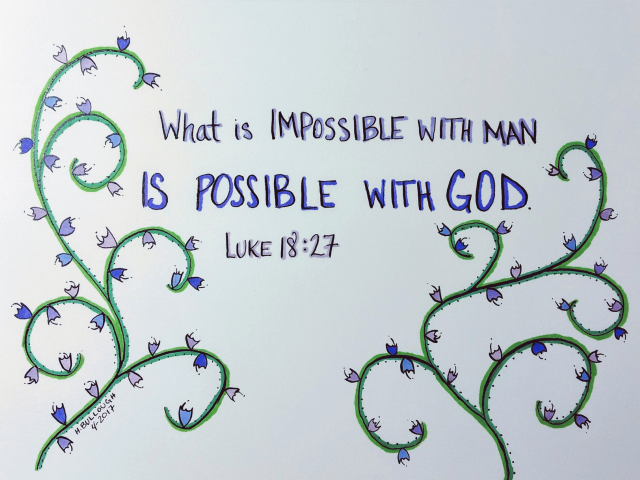 What is IMPOSSIBLE WITH MAN
IS POSSIBLE WITH GOD.
LUKE 18:27
H·BULLOUGH
4-2017